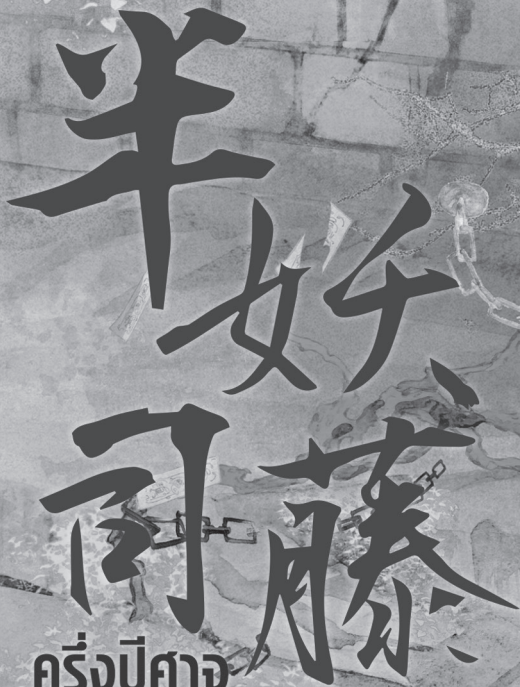 半妖
司藤
ครึ่งปีศาจ